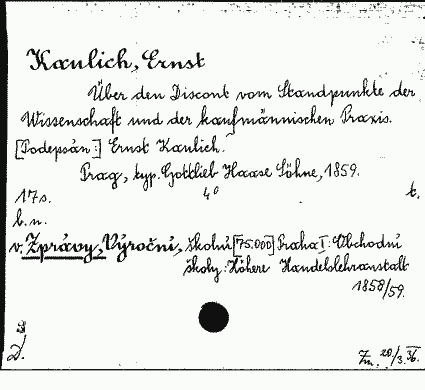 Kaulich, Ernst
Über den Discont vom Standpunkte der
Wissenschaft und der kaufmännischen Praxis.
[Podepsán:] Ernst Kaulich.
Prag, typ. Gottlieb Haase Söhne, 1859.
17 s. 4° t.
b. n.
v. Zprávy, Výroční, školní [75.000] Praha I: Obchodní
školy: Höhere Handelslehranstalt
1858/59.
D. Zn. 20/3.36.